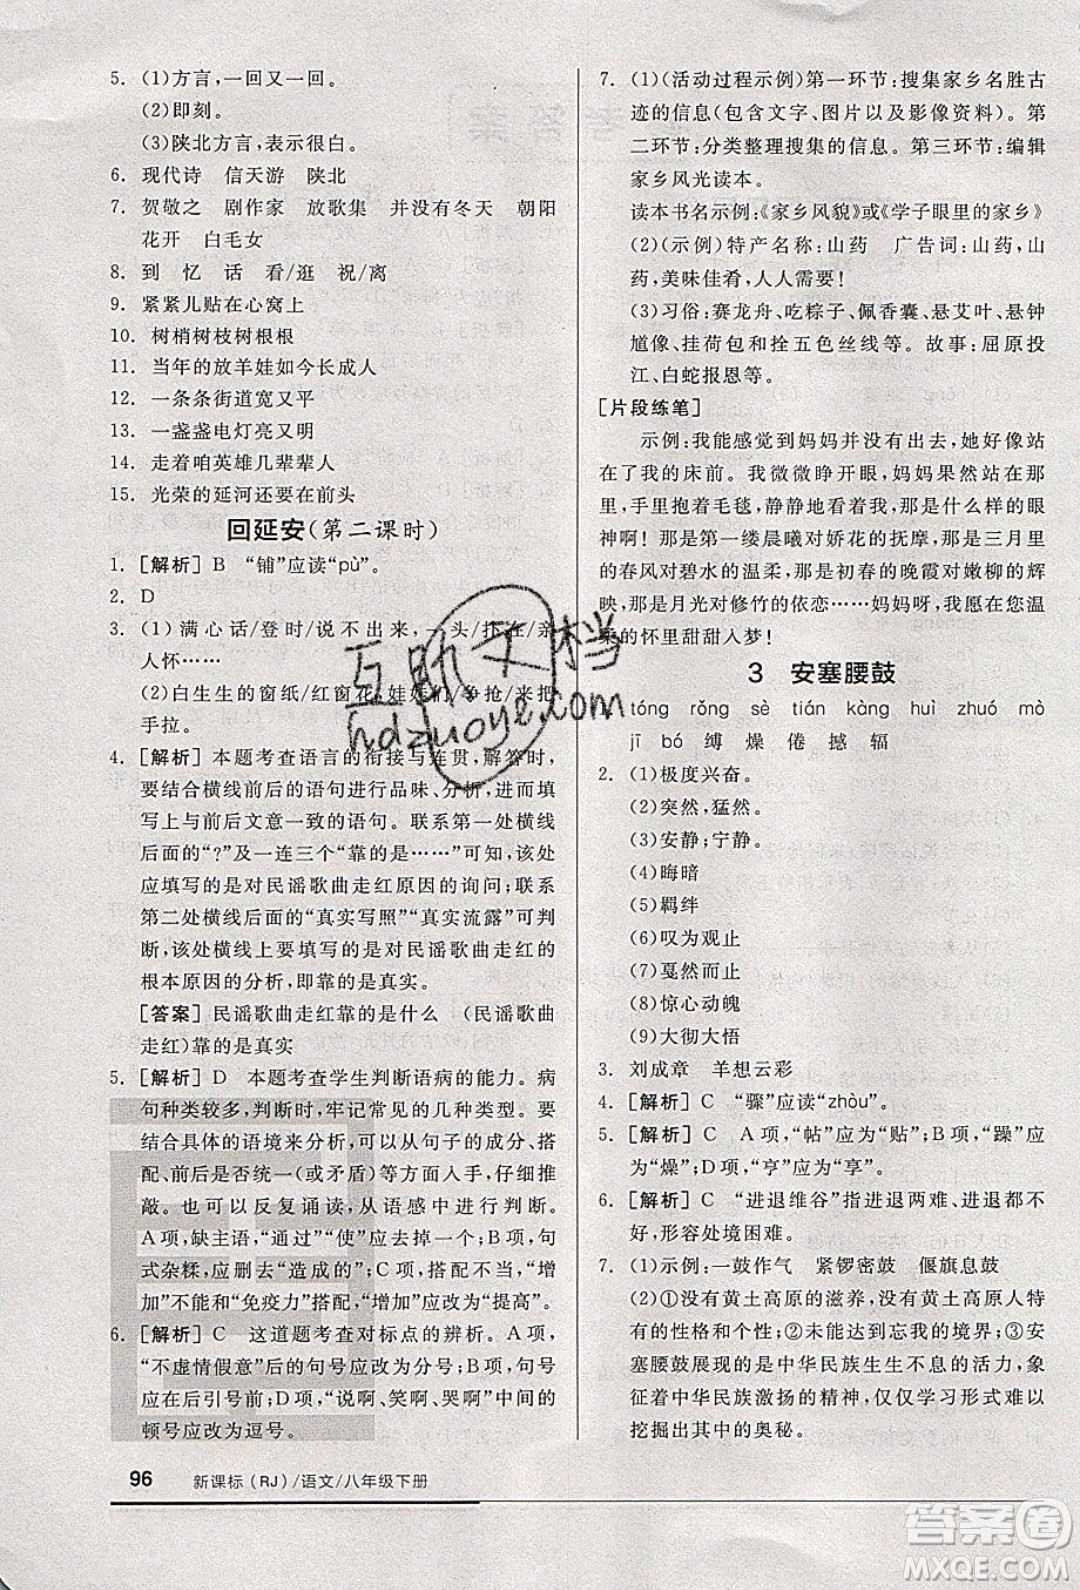 5. (1)方言,一回又一回。
(2)即刻。
(3)陕北方言,表示很白。
6. 现代诗 信天游 陕北
7. 贺敬之 剧作家 放歌集 并没有冬天 朝阳
花开 白毛女
8. 到 忆 话 看/逛 祝/离
9. 紧紧儿贴在心窝上
10. 树梢树枝树根根
11. 当年的放羊娃如今长成人
12. 一条条街道宽又平
13. 一盏盏电灯亮又明
14. 走着咱英雄几辈辈人
15. 光荣的延河还要在前头
回延安(第二课时)
1. [解析] B “铺”应读“pù”。
2. D
3. (1)满心话/登时/说不出来,一头/扑在/亲
人怀……
(2)白生生的窗纸/红窗花,娃娃们/争抢/来把
手拉。
4. [解析] 本题考查语言的衔接与连贯,解答时,
要结合横线前后的语句进行品味、分析,从而填
写上与前后文意一致的语句。联系第一处横线
后面的“?”及一连三个“靠的……”可知,该处
应填写的是对民谣歌曲走红原因的询问;联系
第二处横线后面的“真实写照”“真实流露”可判
断,该处横线上要填写的是对民谣歌曲走红的
根本原因的分析,即靠的是真实。
[答案] 民谣歌曲走红靠的是什么 (民谣歌曲
走红)靠的是真实
5. [解析] D 本题考查学生判断语病的能力。病
句种类较多,判断时,牢记常见的几种类型。要
结合具体的语境来分析,可以从句子的成分、搭
配、前后是否统一(或矛盾)等方面入手,仔细推
敲。也可以反复诵读,从语感上进行判断。
A项,缺主语,“通过”“使”应去掉一个;B项,句
式杂糅,应删去“造成的”;C项,搭配不当,“增
加”不能和“免疫力”搭配,“增加”应改为“提高”。
6. [解析] C 这道题考查对标点的辨析。A项,
“不虚情假意”后的句号应改为分号;B项,句号
应在后引号前;D项,“说啊、笑啊、哭啊”中间的
顿号应改为逗号。
7. (1)(活动过程示例)第一环节:搜集家乡名胜古
迹的信息(包含文字、图片以及影像资料)。第
二环节:分类整理搜集的信息。第三环节:编辑
家乡风光读本。
读本书名示例:《家乡风貌》或《学子眼里的家乡》
(2)(示例)特产名称:山药 广告词:山药,山
药,美味佳肴,人人需要!
(3)习俗:赛龙舟、吃粽子、佩香囊、悬艾叶、悬钟
馗像、挂荷包和拴五色丝线等。故事:屈原投
江、白蛇报恩等。
[片段练笔]
示例:我能感觉到妈妈并没有出去,她好像站
在了我的床前。我微微睁开眼,妈妈果然站在那
里,手里抱着毛毯,静静地看着我,那是怎样的眼
神啊!那是第一缕晨曦对娇花的抚摩,那是三月里
的春风对碧水的温柔,那是初春的晚霞对嫩柳的辉
映,那是月光对修竹的依恋……妈妈呀,我愿在您温
柔的怀里甜甜入梦!
3 安塞腰鼓
tóng rǒng sè tián kàng huì zhuó mò
jī bó 缚 燥 倦 撼 辐
2. (1)极度兴奋。
(2)突然,猛然。
(3)安静;宁静。
(4)晦暗
(5)羁绊
(6)叹为观止
(7)戛然而止
(8)惊心动魄
(9)大彻大悟
3. 刘成章 羊想云彩
4. [解析] C “骤”应读“zhòu”。
5. [解析] C A项,“帖”应为“贴”;B项,“躁”应
为“燥”;D项,“亨”应为“享”。
6. [解析] C “进退维谷”指进退两难、进退都不
好,形容处境困难。
7. (1)示例:一鼓作气 紧锣密鼓 偃旗息鼓
(2)①没有黄土高原的滋养,没有黄土高原人特
有的性格和个性;②未能达到忘我的境界;③安
塞腰鼓展现的是中华民族生生不息的活力,象
征着中华民族激扬的精神,仅仅学习形式难以
挖掘出其中的奥秘。
96 新课标(RJ)/语文/八年级下册
互助文档
hdzuoye.com
答案圈
MXQE.COM